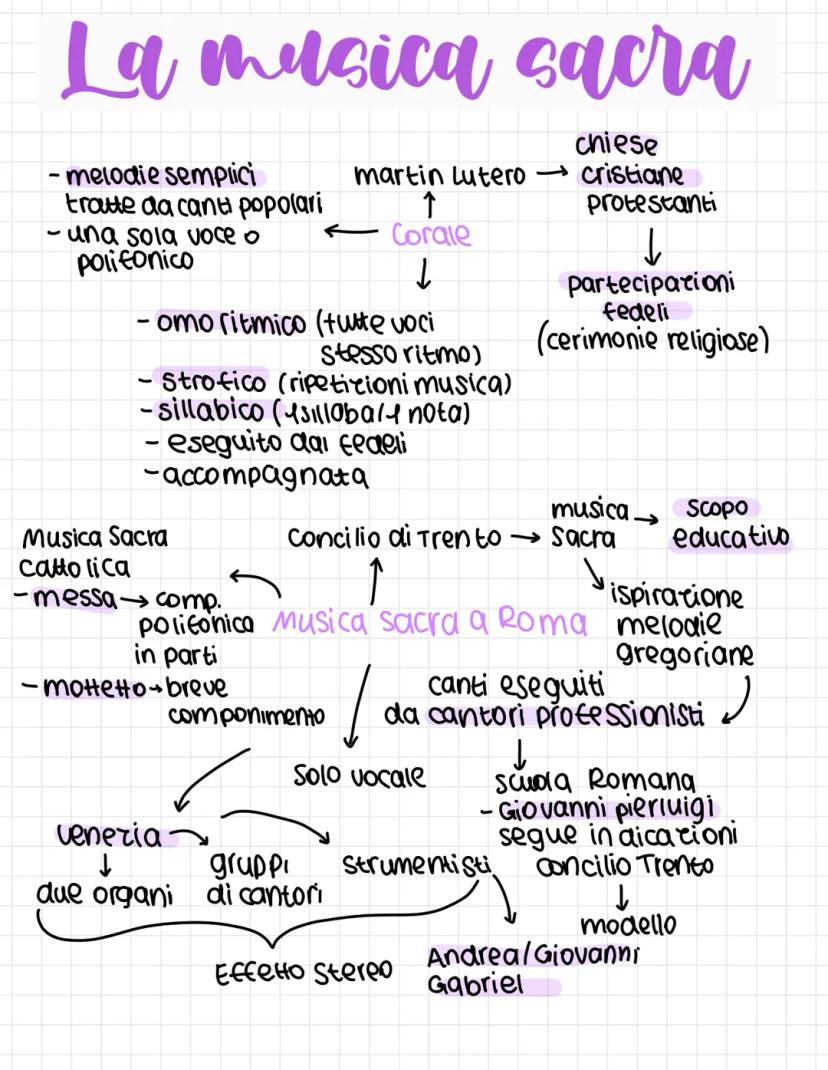 La musica sacra
- melodie semplici
tratte da canti popolari
- una sola voce o
polifonico
martin lutero →
chiese
cristiane
protestanti
Corale
partecipazioni
fedeli
(cerimonie religiose)
- omoritmico (tutte voci
stesso ritmo)
- strofico (ripetizioni musica)
- sillabico (1 sillaba/1 nota)
- eseguito dai fedeli
- accompagnata
Musica Sacra
Cattolica
- messa → comp.
polifonica
in parti
- mottetto → breve
componimento
Concilio di Trento →
musica →
sacra
scopo
educativo
Musica sacra a Roma
ispirazione
melodie
gregoriane
canti eseguiti
da cantori professionisti
Solo vocale
scuola Romana
- Giovanni pierluigi
segue indicazioni
concilio Trento
modello
venezia
due organi
gruppi
di cantori
strumentisti
Effetto Stereo
Andrea/Giovanni
Gabriel